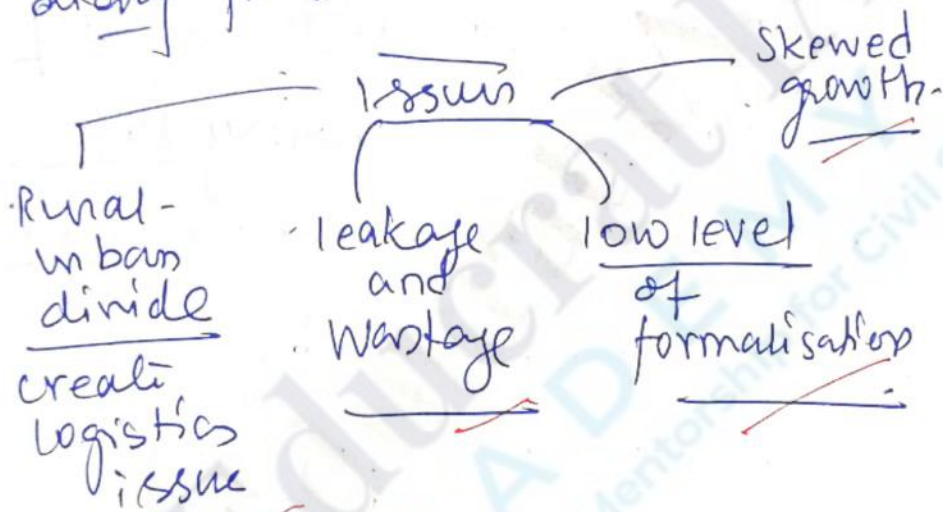 Issues
Skewed
growth.
Rural-
urban
divide
create
logistics
issue
leakage
and
wastage
low level
of
formalisation